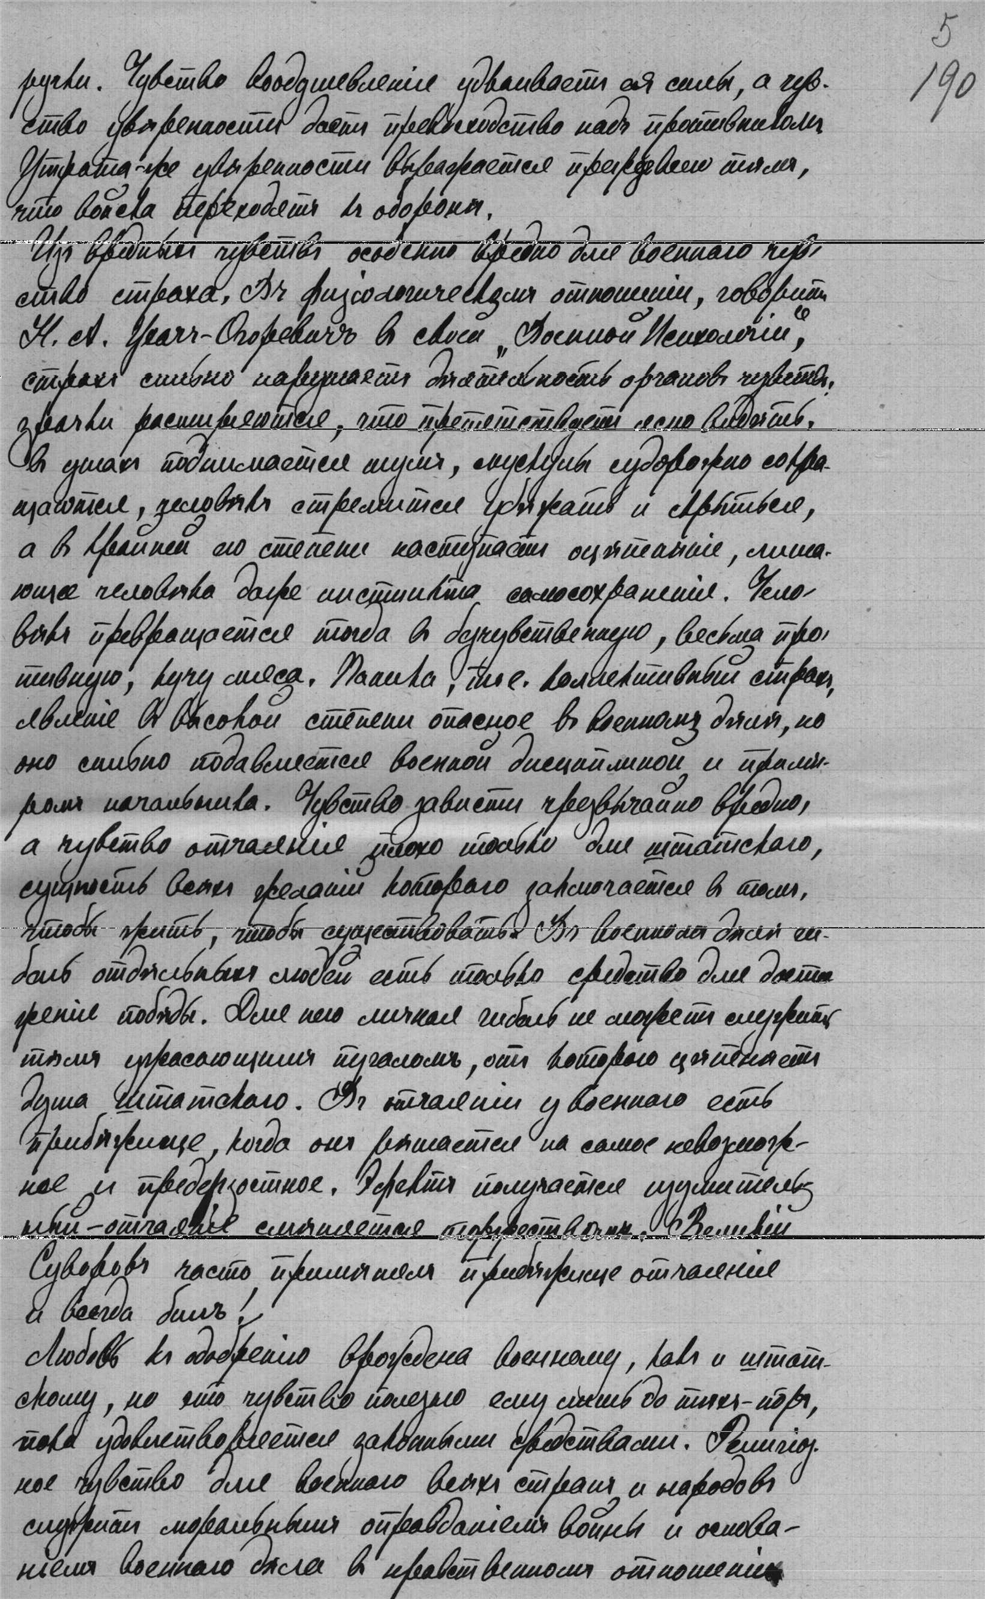 5
190
ручки. Чувство воодушевленія удваиваетъ ея силы, а чув-
ство уверенности даетъ превосходство надъ противникомъ
Утрата-же увѣренности выражается прежде всего тѣмъ,
что войска переходятъ къ оборонѣ.
Изъ вредныхъ чувствъ особенно вредно для военнаго чув-
ство страха. Въ физіологическомъ отношеніи, говоритъ
Н. А. Ухачъ-Огоровичъ въ своей „Военной Психологіи",
страхъ сильно нарушаетъ дѣятельность органовъ чувствъ:
зрачки расширяются, что препятствуетъ ясно видѣть,
въ ушахъ поднимается шумъ, мускулы судорожно сокра-
щаются, человѣкъ стремится убѣжать и скрыться,
а въ крайней его степени наступаетъ оцѣпѣніе, лиша-
ющее человѣка даже инстинкта самосохраненія. Чело-
вѣкъ превращается тогда въ безчувственную, весьма про-
тивную, кучу мяса. Паника, т.е. коллективный страхъ,
явленіе въ высокой степени опасное въ военномъ дѣлѣ, но
оно сильно подавляется военной дисциплиной и примѣ-
ромъ начальника. Чувство зависти чрезвычайно вредно,
а чувство отчаянія плохо только для штатскаго,
сущность всѣхъ желаній котораго заключается въ томъ,
чтобы жить, чтобы существовать. Въ военномъ дѣлѣ ги-
бель отдѣльныхъ людей есть только средство для дости-
женія побѣды. Для него личная гибель не можетъ служить
тѣмъ ужасающимъ пугаломъ, отъ котораго цѣпенѣетъ
душа штатскаго. Въ отчаяніи у военнаго есть
прибѣжище, когда онъ рѣшается на самое невозмож-
ное и предерзостное. Эфектъ получается изумитель-
ный-отчаяніе смѣняется торжествомъ. Великій
Суворовъ часто примѣнялъ прибѣжище отчаянія
и всегда билъ!
Любовь къ одобренію врождена военному, какъ и штат-
скому, но это чувство полезно ему лишь до тѣхъ-поръ,
пока удовлетворяется законными средствами. Религіоз-
ное чувство для военнаго всѣхъ странъ и народовъ
служитъ моральнымъ оправданіемъ войны и основа-
ніемъ военнаго дѣла въ нравственномъ отношеніи